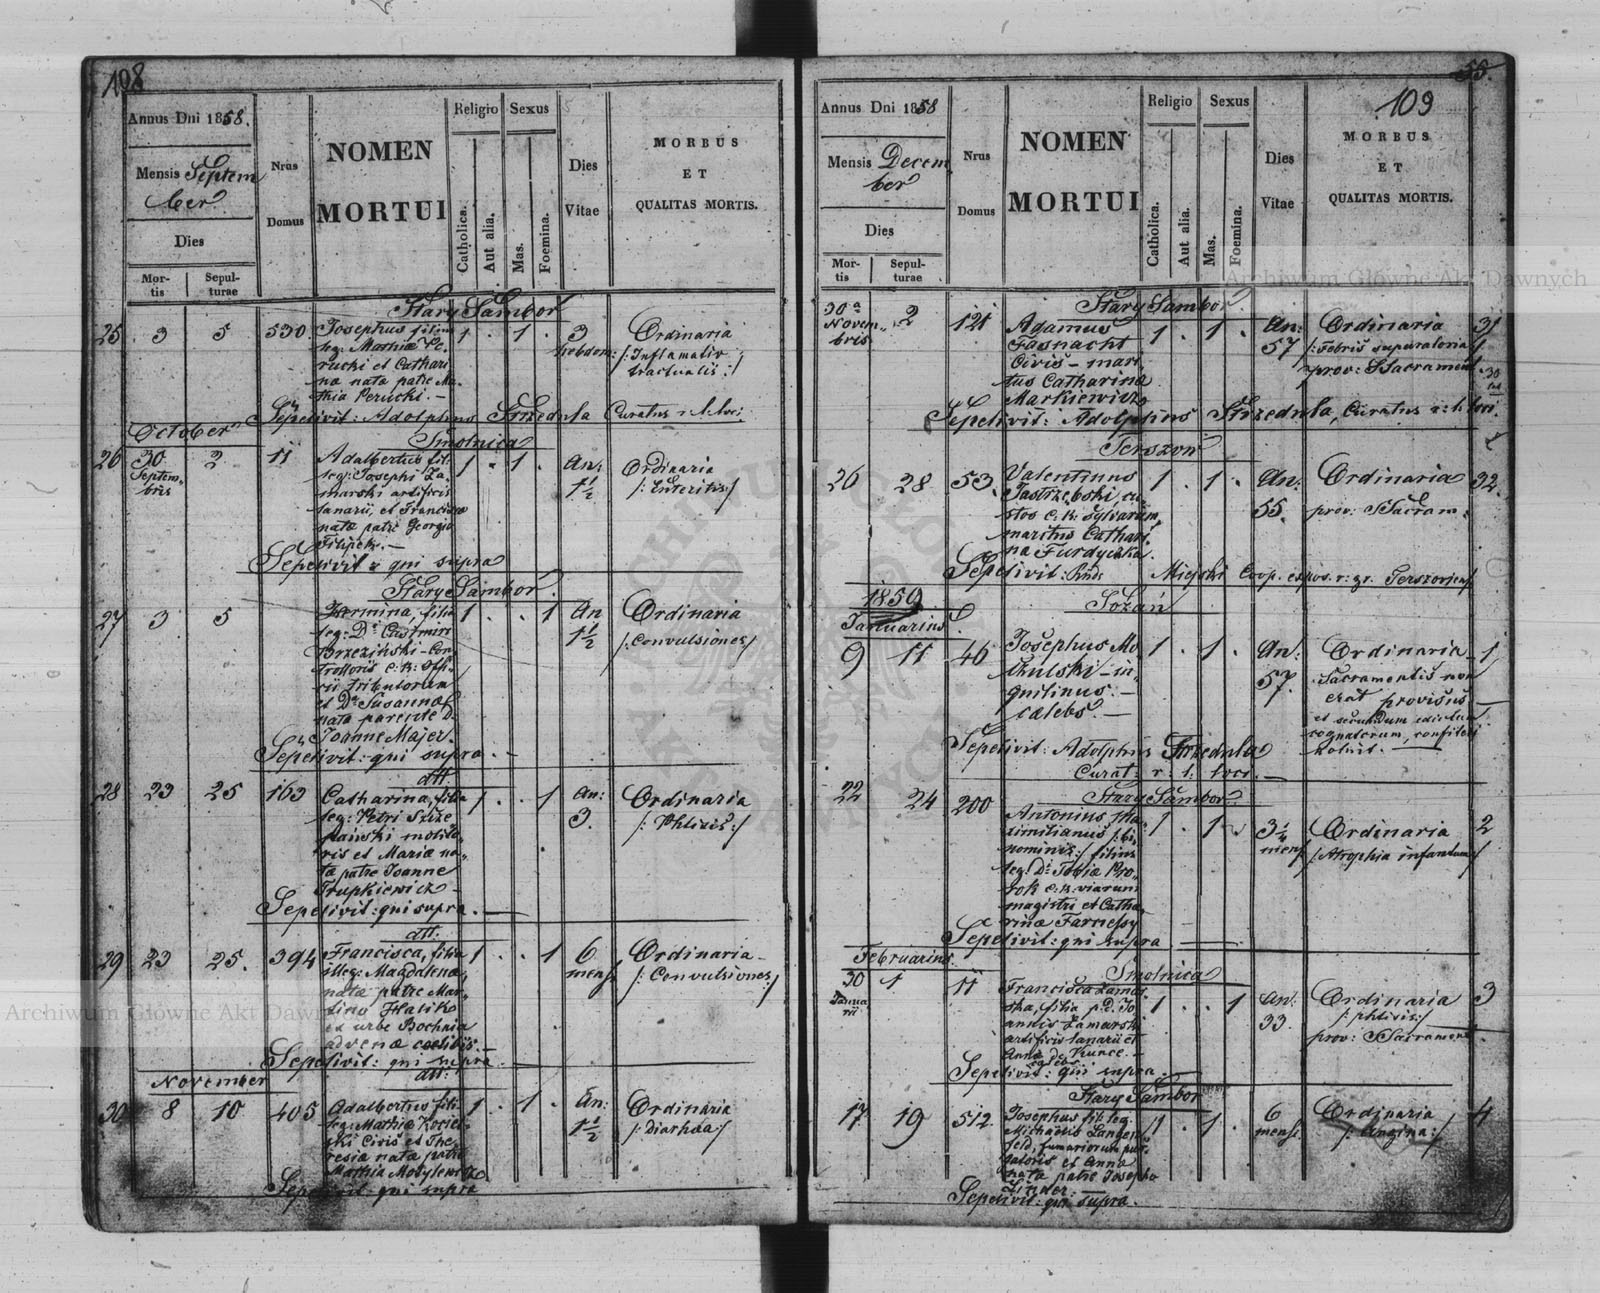 108
Annus Dni 1858.
Mensis Septem
ber
Dies
Mor-
tis
Sepul-
turae
Nrus
Domus
NOMEN
MORTUI
Religio
Catholica.
Aut alia.
Sexus
Mas.
Foemina.
Dies
Vitae
MORBUS
ET
QUALITAS MORTIS.
Stary Sambor
25 3 5 530
Josephus filius
leg: Mathiæ Pe
rucki et Cathari
na nata patre Ma
thia Perucki. —
1 . 1 .
3
hebdom:
Ordinaria
/: Inflamatio
tractualis :/
Sepelivit: Adolphus Strzedula Curatus r: l: loci
October
Smolnica
26 30
Septem
bris
2 11
Adalbertus fil:
leg: Josephi Za
marski artificis
lanarii, et Francisca
nata patre Georgio
Filipek. —
1 . 1 .
An:
1 1/2
Ordinaria
/: Enteritis :/
Sepelivit: qui supra
Stary Sambor.
27 3 5
Hermina, filia
leg: Di Casimiri
Brzeziński – Con
trolloris C: R: Offi
cii tributorum
et Da Susanna
nata parente D.
Joanne Majer.
1 . . 1
An
1 1/2
Ordinaria
/: Convulsiones :/
Sepelivit: qui supra. —
dtt
28 23 25 163
Catharina, filia
leg: Petri Szcze
pański molito
ris et Mariæ na
ta patre Joanne
Trupkiewicz —
1 . . 1
An:
3.
Ordinaria
/: Phtisis :/
Sepelivit: qui supra. —
dtt.
29 23 25. 394
Francisca, filia
illeg: Magdalena,
nata patre Mar
tino Halik
ex urbe Bochnia
advenæ cælibis. —
1 . . 1
6
mens:
Ordinaria
/: Convulsiones :/
Sepelivit: qui supra
dtt:
November
30 8 10 405
Adalbertus fili
leg: Mathiæ Kocie
ski Civis et The
resiæ nata patre
Mathia Motylewicz
1 . 1 .
An:
1 1/2
Ordinaria
/: Diarhæa :/
Sepelivit: qui supra
55.
109
Annus Dni 1858
Mensis Decem
ber
Dies
Mor-
tis
Sepul-
turae
Nrus
Domus
NOMEN
MORTUI
Religio
Catholica.
Aut alia.
Sexus
Mas.
Foemina.
Dies
Vitae
MORBUS
ET
QUALITAS MORTIS.
Stary Sambor
30a
Novem
bris
2 121
Adamus
Fasnacht
Civis – mari
tus Catharina
Markiewicz
1 . 1 .
An:
57
Ordinaria
/: Febris supuratoria :/
prov: SSacrament
31
Sepelivit: Adolphus Strzedula, Curatus r: l: loci
Terszow
26 28 53.
Valentinus
Jastrzębski cu
stos C. R: sylvarum,
maritus Cathari
na Furdyczka.
1 . 1 .
An:
55.
Ordinaria
prov: SSacram.
32.
Sepelivit: Miejski Coop. expos. r: gr. Terszoviens
1859
Januarius
Sozań
9 11 46
Josephus Mo
czulski – in
quilinus. –
cælebs. —
1 . 1 .
An:
57.
Ordinaria
Sacramentis non
erat provisus
et secundum edictum
cognatorum, confiteri
noluit. —
1
Sepelivit: Adolphus Strzedula
Curat: r: l: loci. —
Stary Sambor
22 24 200
Antonius Ma
ximilianus /: bi
nominis :/ filius
leg: Di Tobiæ Pro
kok C: R: viarum
magistri et Catha
rinæ Farnessy
1 . 1
3 1/4
mens
Ordinaria
/: Atrophia infantum :/
2
Sepelivit: qui supra
Februarius.
Smolnica
30
Janua
rii
1 11
Francisca Zamar
ska, filia p. D. Jo
annis Zamarski
artificis lanarii et
Anna de Kunce. –
cælebs
1 . . 1
An:
33.
Ordinaria
/: phtisis :/
prov: SSacrament
3
Sepelivit: qui supra.
Stary Sambor
17 19 512.
Josephus fil: leg:
Michaelis Langen
feld, fumariorum pur
gatoris et Anna
nata patre Josepho
Linder. —
1 . 1 .
6
mens:
Ordinaria
/: Angina :/
4
Sepelivit: qui supra.
Archiwum Główne Akt Dawnych
Archiwum Główne Akt Dawnych